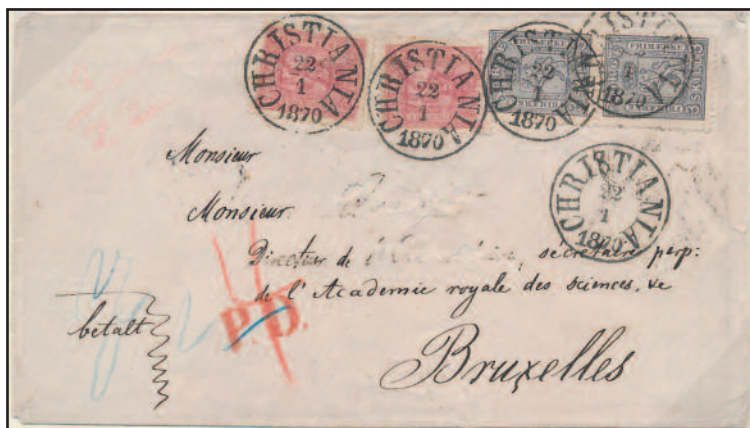 CHRISTIANIA
22
1
1870
CHRISTIANIA
22
1
1870
CHRISTIANIA
22
1
1870
FRIMERKE
1870
CHRISTIANIA
22
1
1870
Monsieur
Monsieur
Directeur de secrétaire perp:
de l'Academie royale des sciences,
betalt
P.D.
Bruxelles